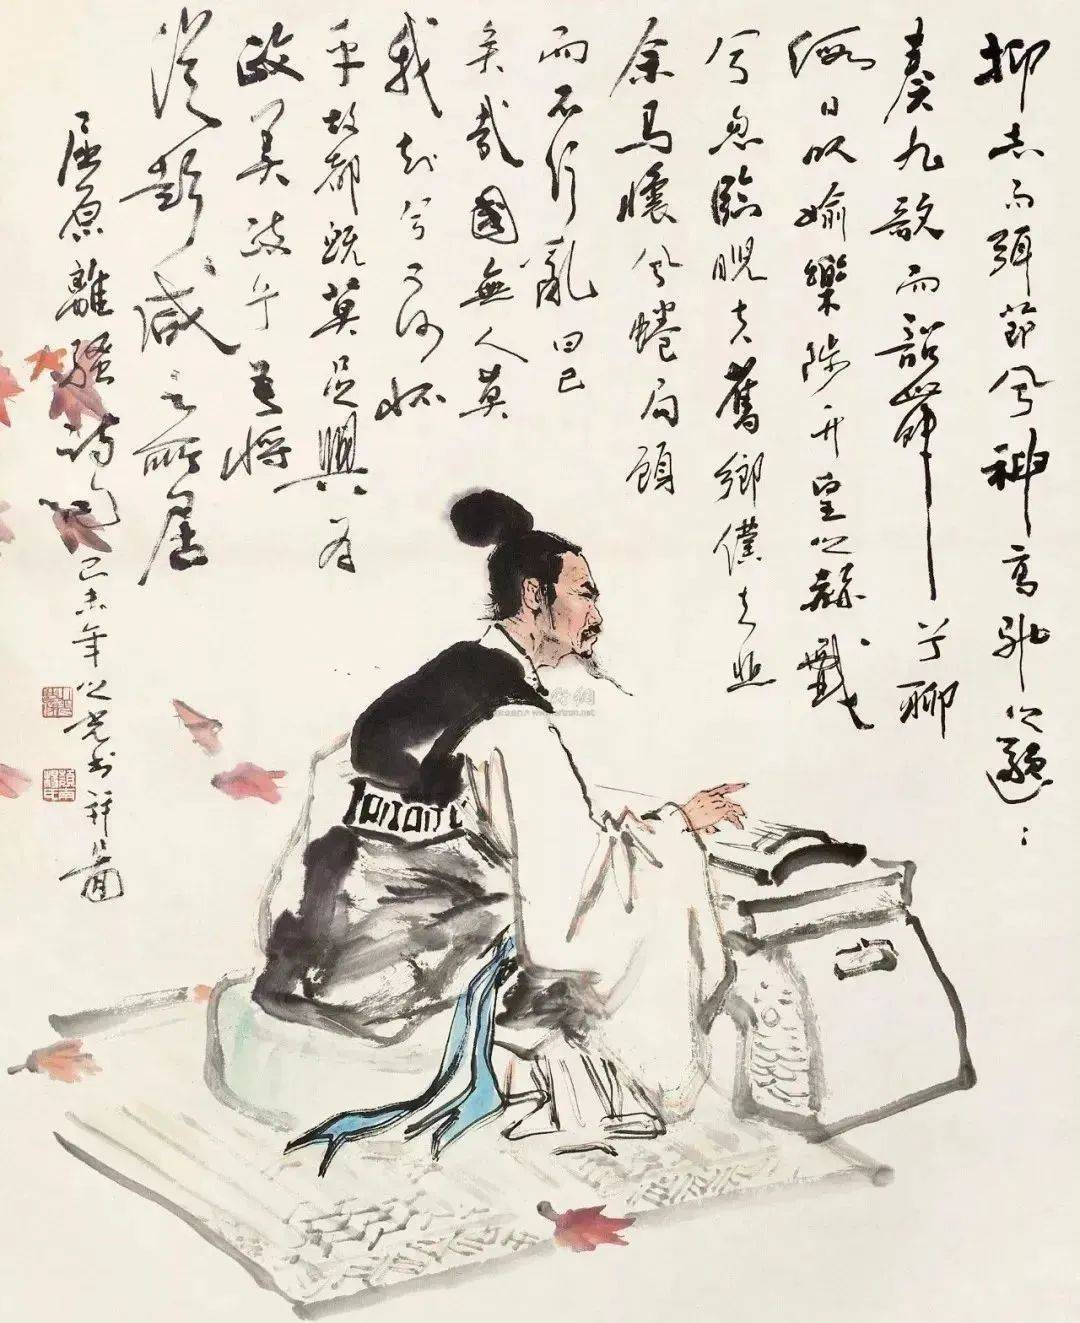 抑志而弭節兮神高馳之邈:
奏九歌而韶舞兮聊
假日以婾樂陟升皇之赫戲
兮忽臨睨夫舊鄉僕夫悲
余馬懷兮蜷局顧
而不行亂曰已
矣哉國無人莫
我知兮又何怀
乎故都既莫足與為
政美政兮吾將
從彭咸之所居
屈原離騷詩句
己未年之光書 圖